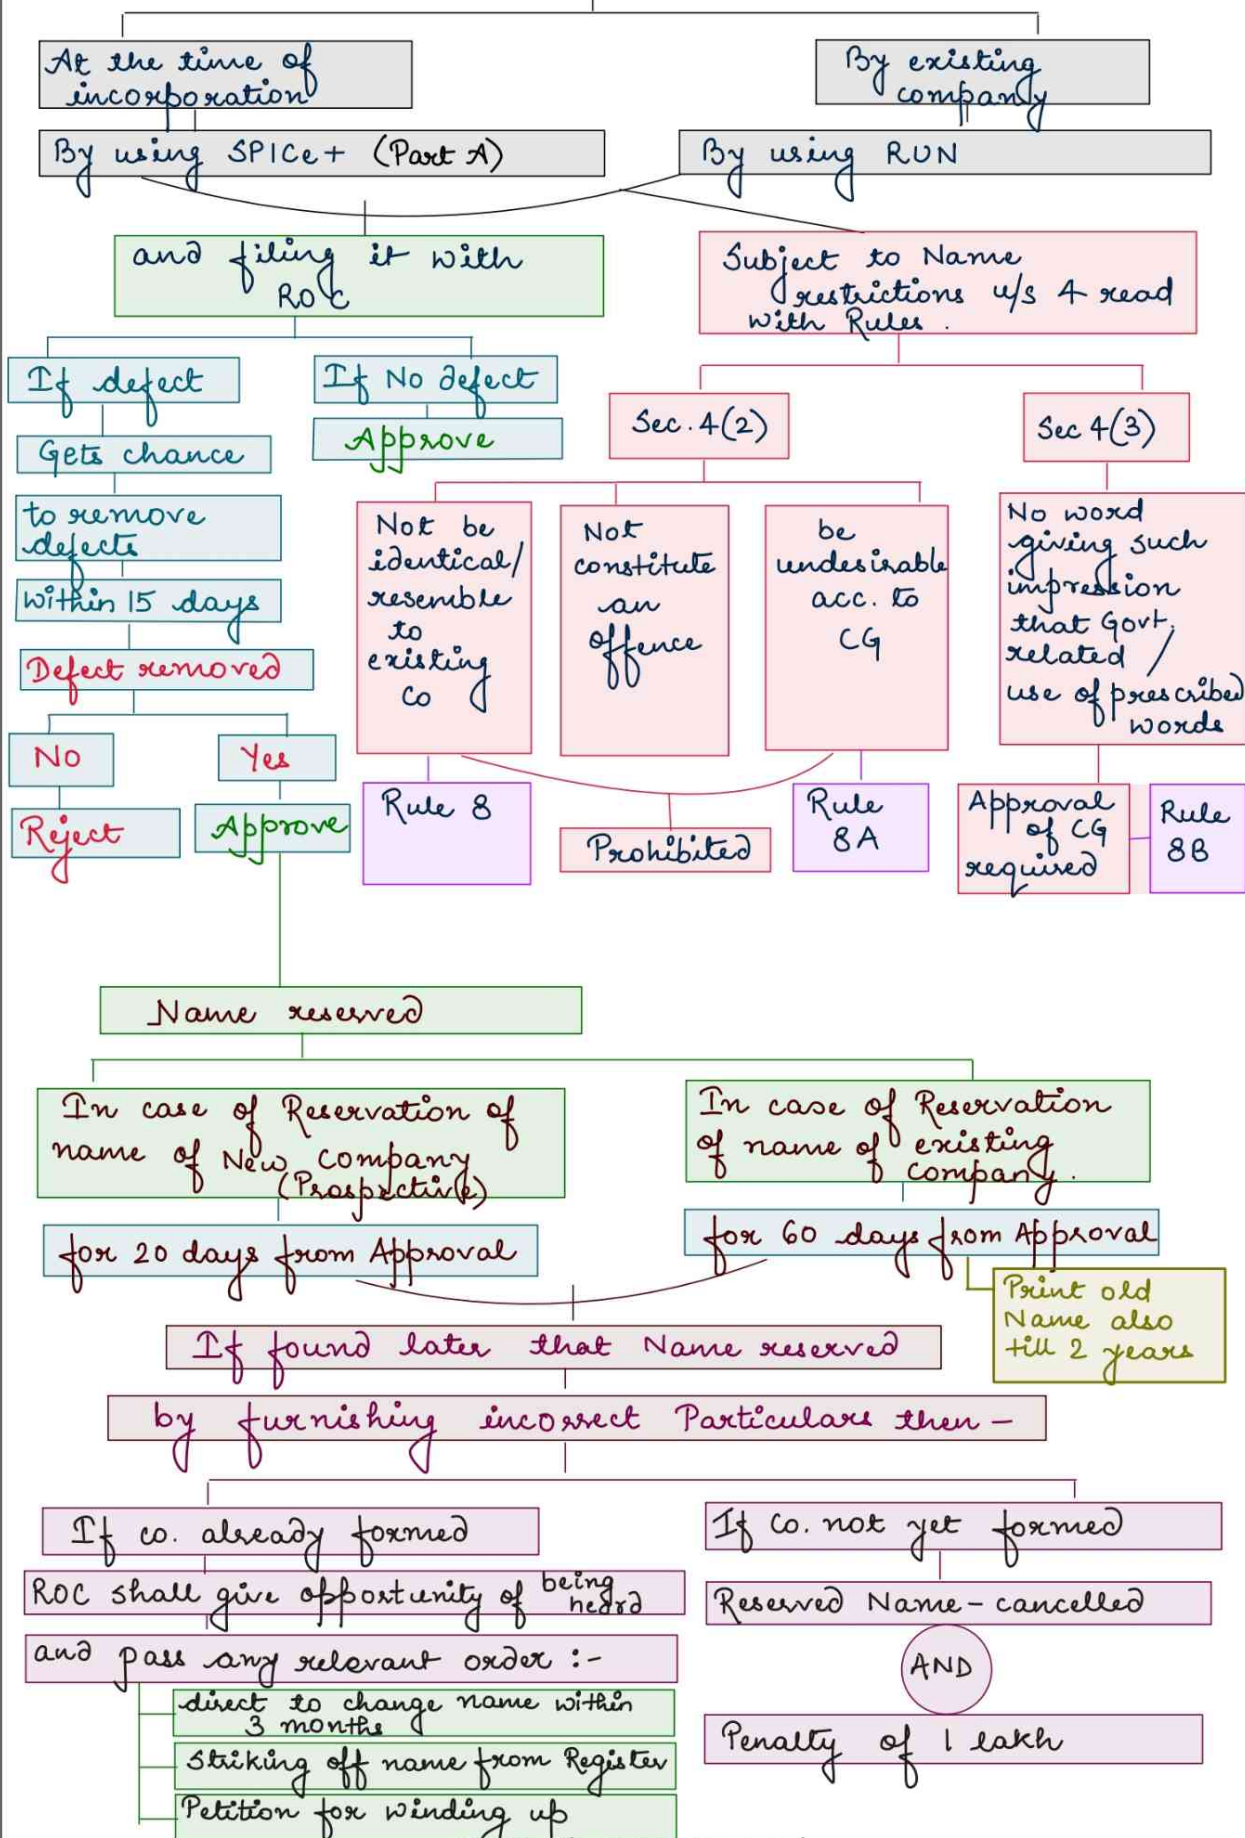 At the time of
incorporation
By existing
company
By using SPICe+ (Part A)
By using RUN
and filing it with
ROC
Subject to Name
restrictions u/s 4 read
with Rules.
If defect
If No defect
Gets chance
Approve
to remove
defects
within 15 days
Defect removed
No
Yes
Reject
Approve
Sec. 4(2)
Sec 4(3)
Not be
identical/
resemble
to
existing
Co
Not
constitute
an
offence
be
undesirable
acc. to
CG
No word
giving such
impression
that Govt.
related /
use of prescribed
words
Rule 8
Prohibited
Rule
8A
Approval
of CG
required
Rule
8B
Name reserved
In case of Reservation of
name of New company
(Prospective)
In case of Reservation
of name of existing
company.
for 20 days from Approval
for 60 days from Approval
Print old
Name also
till 2 years
If found later that Name reserved
by furnishing incorrect Particulars then -
If co. already formed
ROC shall give opportunity of being
heard
and pass any relevant order :-
direct to change name within
3 months
Striking off name from Register
Petition for winding up
If Co. not yet formed
Reserved Name - cancelled
AND
Penalty of 1 lakh